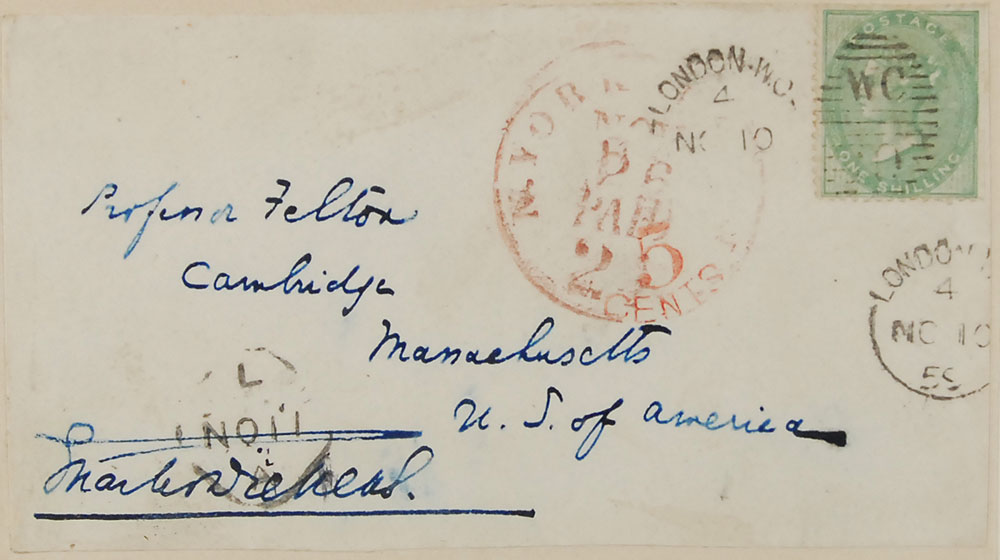 POSTAGE
WC
ONE SHILLING
LONDON·W.C.
4
NO 10
N. YORK
NO
PAID
25
CENTS
Professor Felton
Cambridge
Massachusetts
U. S. of America
LONDON·
4
NO 10
L
NO 11
Charles Dickens.